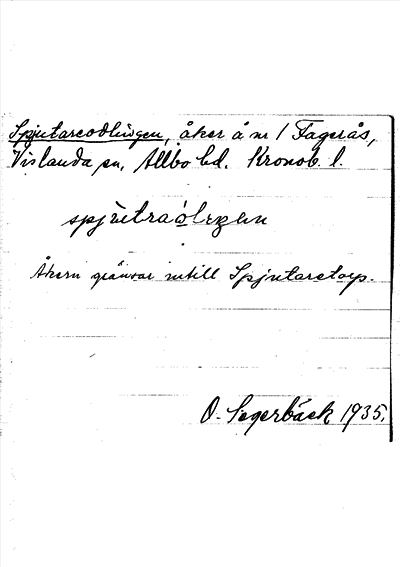 Spjutareodlingen, åker å nr 1 Fagerås,
Vislanda sn, Allbo hd. Kronob. l.
Åkern gränsar intill Spjutaretorp.
O. Segerbäck 1935.